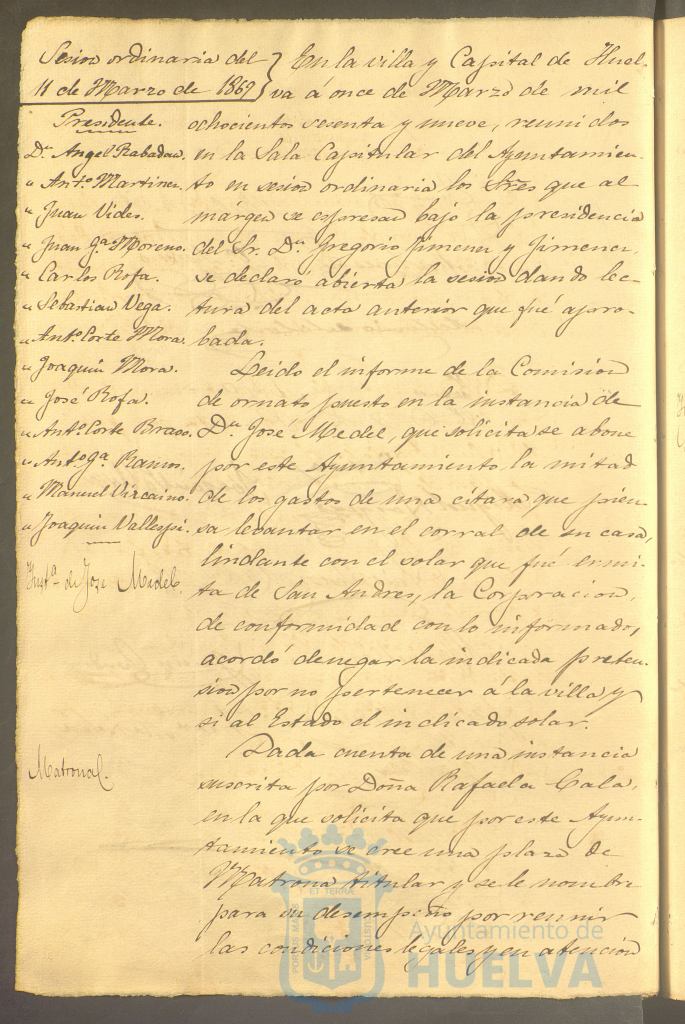 Sesion ordinaria del
11 de Marzo de 1869
Presidente.
Dn. Angel Rabadan.
" Anto. Martinez.
" Juan Vides.
" Juan Ga. Moreno.
" Carlos Rofa.
" Sebastian Vega.
" Anto. Corte Mora.
" Joaquin Mora.
" José Rofa.
" Anto. Corte Bravo.
" Anto. Ga. Ramos.
" Manuel Vizcaino.
" Joaquin Vallespi.
Insta. de José Medel.
Matrona.
En la villa y Capital de Huel-
va á once de Marzo de mil
ochocientos sesenta y nueve, reunidos
en la Sala Capitular del Ayuntamien-
to en sesion ordinaria los Sres que al
márgen se espresan bajo la presidencia
del Sr. Dn. Gregorio Jimenez y Jimenez,
se declaró abierta la sesion dando lec-
tura del acta anterior que fué apro-
bada.
Leido el informe de la Comision
de ornato puesto en la instancia de
Dn. José Medel, que solicita se abone
por este Ayuntamiento la mitad
de los gastos de una citara que pien-
sa levantar en el corral de su casa,
lindante con el solar que fué ermi-
ta de San Andres, la Corporacion,
de conformidad con lo informado,
acordó denegar la indicada preten-
sion por no pertenecer á la villa y
si al Estado el indicado solar.
Dada cuenta de una instancia
suscrita por Doña Rafaela Cala,
en la que solicita que por este Ayun-
tamiento se cree una plaza de
Matrona titular y se le nombre
para su desempeño por reunir
las condiciones legales y en atencion
Ayuntamiento de
HUELVA